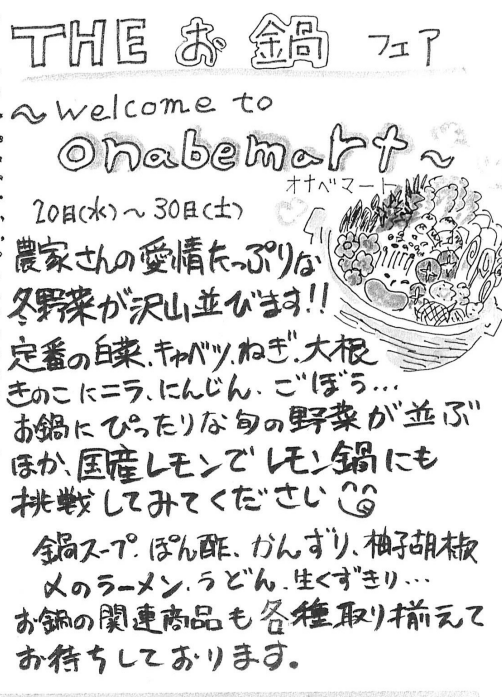 THE お鍋 フェア
～Welcome to
onabemart～
オナベマート
20日(水)～30日(土)
農家さんの愛情たっぷりな
冬野菜が沢山並びます!!
定番の白菜、キャベツ、ねぎ、大根
きのこにニラ、にんじん、ごぼう…
お鍋にぴったりな旬の野菜が並ぶ
ほか、国産レモンでレモン鍋にも
挑戦してみてください
鍋スープ、ぽん酢、かんずり、柚子胡椒
〆のラーメン、うどん、生くずきり…
お鍋の関連商品も各種取り揃えて
お待ちしております。